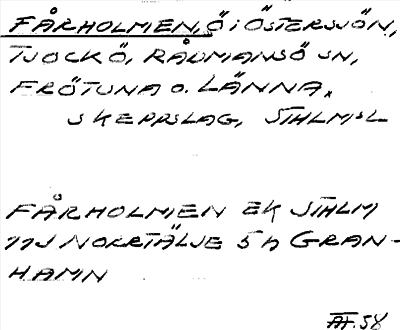 FÅRHOLMEN, Ö i ÖSTERSJÖN,
TJOCKÖ, RÅDMANSÖ SN,
FRÖTUNA O. LÄNNA
SKEPPSLAG, STHLMSL
FÅRHOLMEN EK STHLM
11J NORRTÄLJE 5h GRAN-
HAMN
AF.58